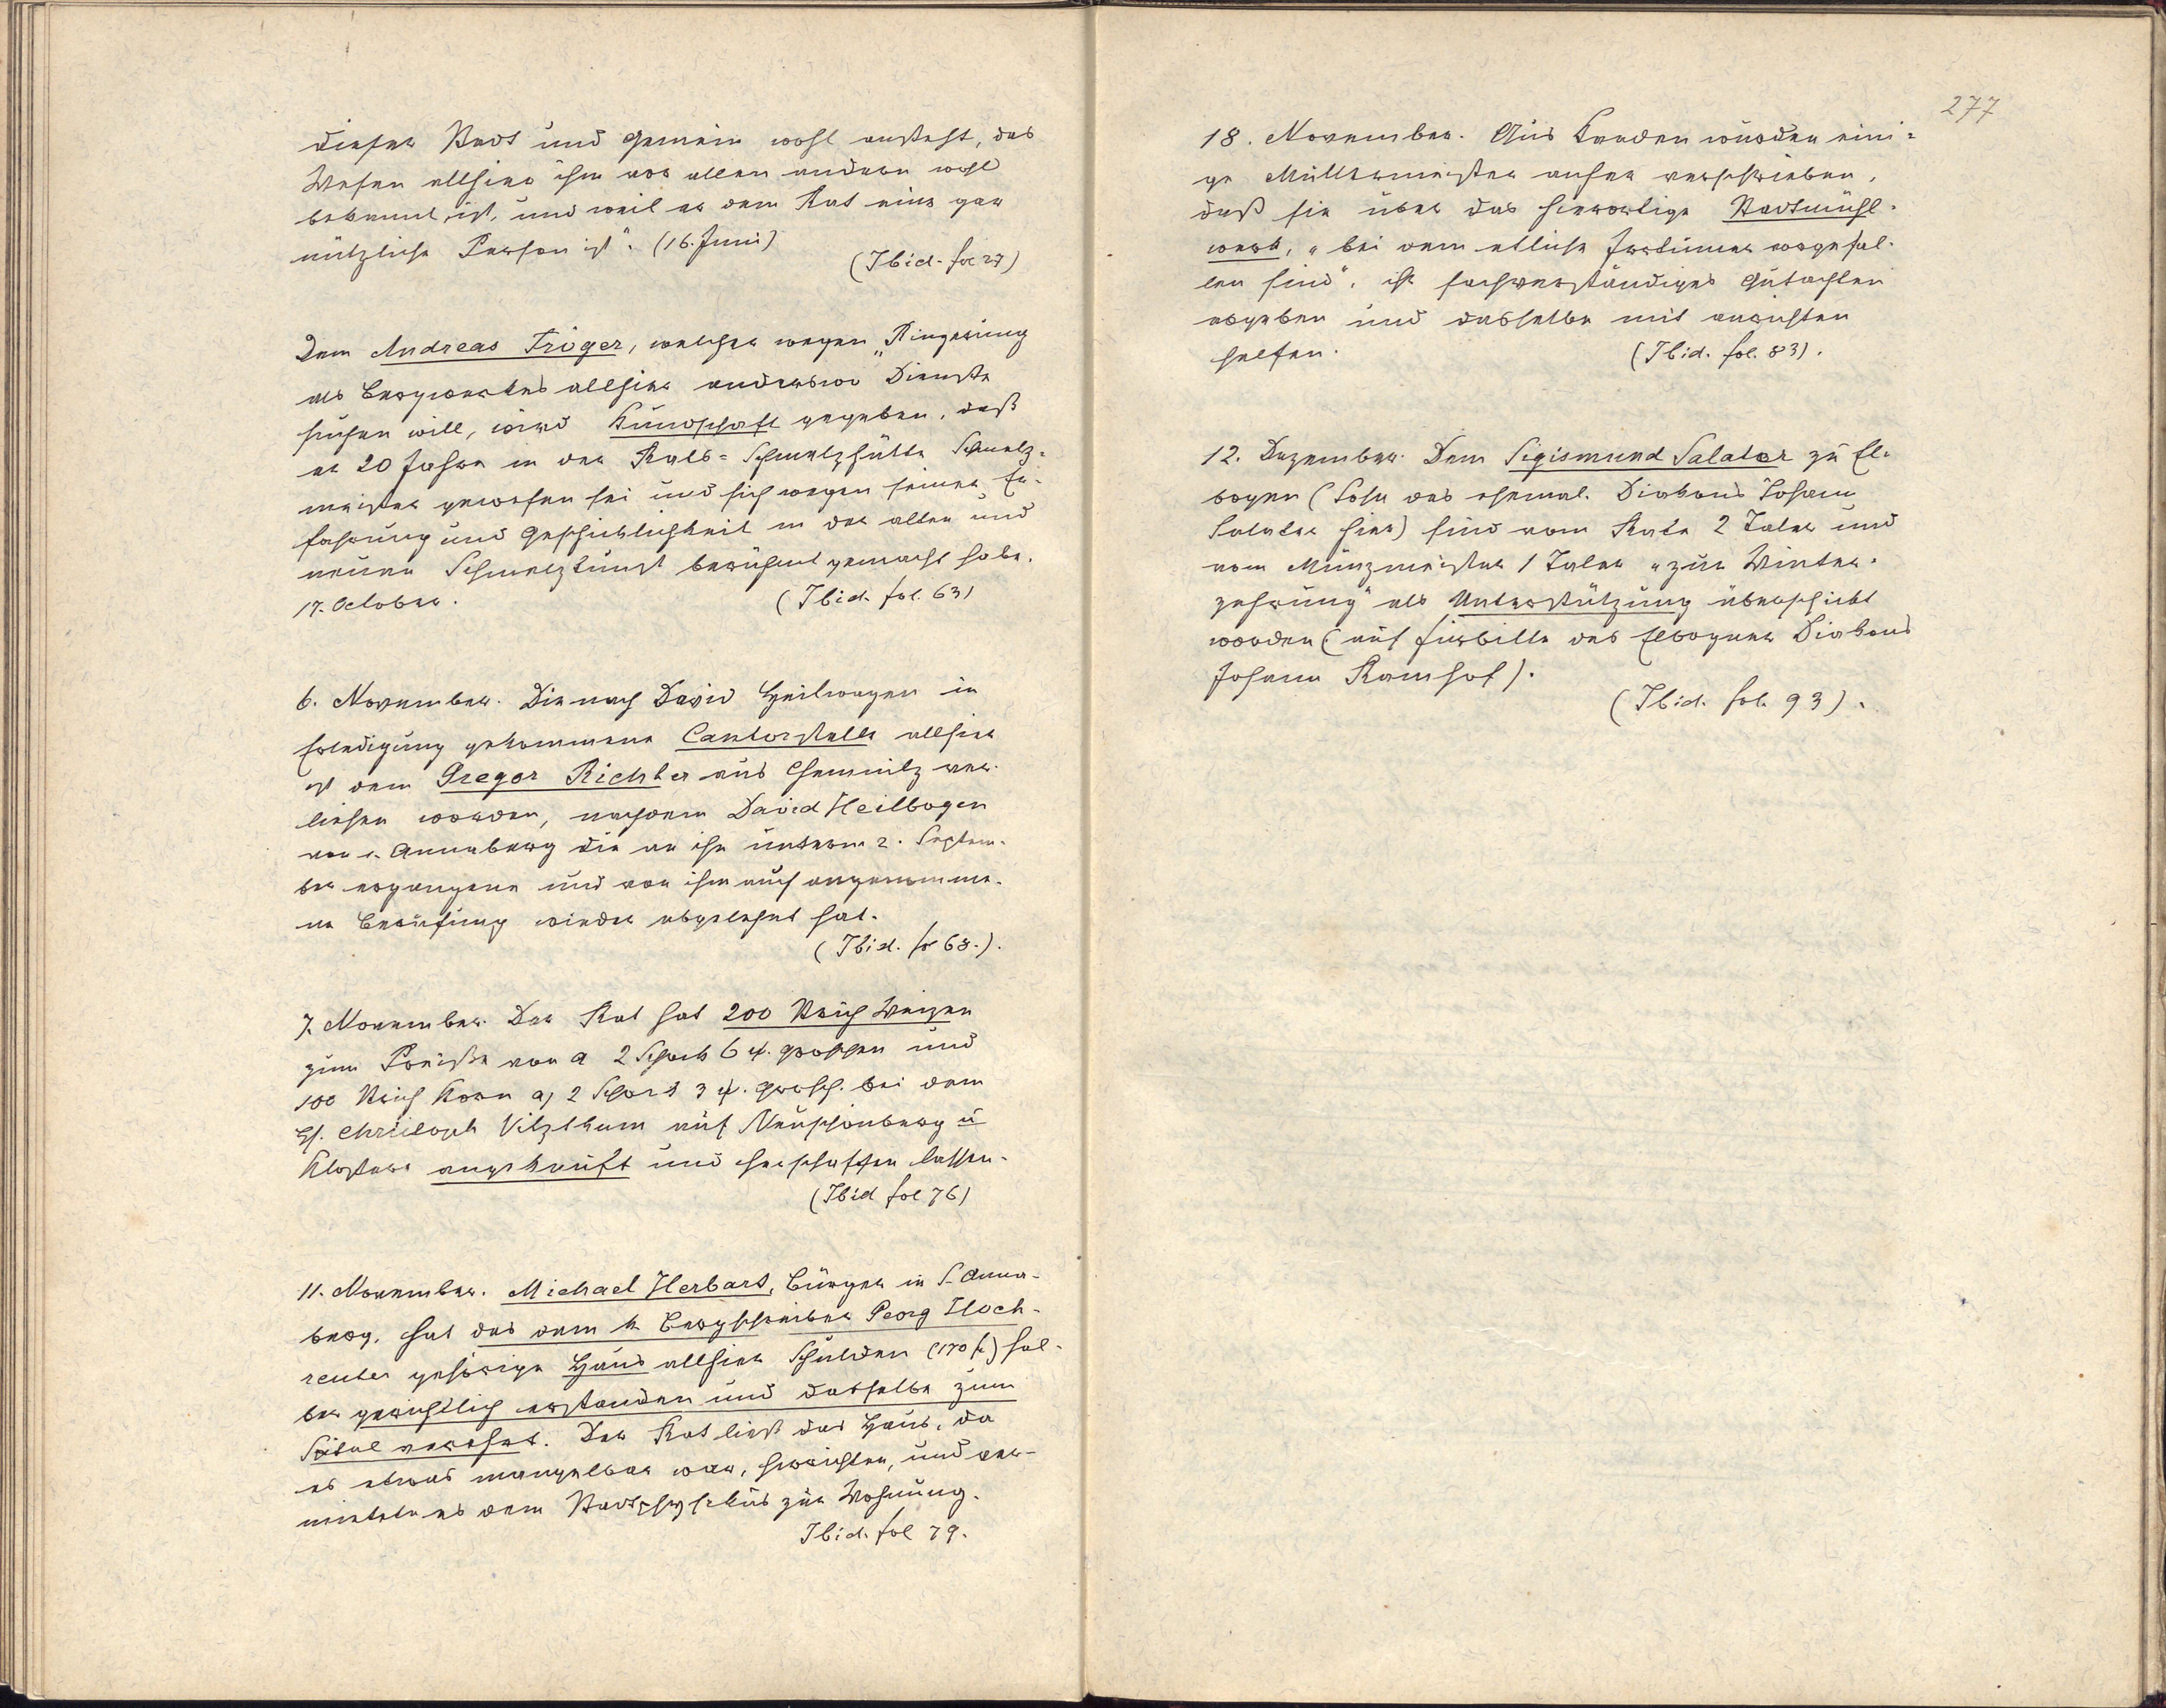 dieser Stadt und Gemein wohl ansteht, das
Wesen allhier ihm vor allen andern wohl
bekannt ist, und weil er dem Rat eine gar
nützliche Person ist“. (16. Juni)
(Ibid. fol 27)
Dem Andreas Tröger, welcher wegen „Ringerung
als Bergwerkes allhier anderswo Dienste
suchen will, wird Kundschaft gegeben, daß
er 20 Jahre in der Rats-Schmelzhütte Schmelz-
meister gewesen sei und sich wegen seiner Er-
fahrung und Geschicklichkeit in der alten und
neuen Schmelzkunst berühmt gemacht habe.
17. October.
(Ibid. fol. 63)
6. November. Die nach David Heilwagen in
Erledigung gekommene Cantorstelle allhier
ist dem Gregor Richter aus Chemnitz ver-
liehen worden, nachdem David Heilbogen
von s. Annaberg die an ihn unterm 2. Septem-
ber ergangene und von ihm auch angenomme-
ne Berufung wieder abgelehnt hat.
(Ibid. fol 68.).
7. November. Der Rat hat 200 Strich Weizen
zum Preise von a 2 Schock 6 w. groschen und
100 Strich Korn a) 2 Schock 3 w. grosch. bei dem
H. Christoph Vitzthum auf Neuschönberg u
Klösterle angekauft und herschaffen lassen.
(Ibid fol 76)
11. November. Michael Herbart, Bürger in S. Anna-
berg, hat das dem k. Bergschreiber Georg Hoch-
reuter gehörige Haus allhier Schulden (170 fl) hal-
ber gerichtlich erstanden und dasselbe zum
Spital verehrt. Der Rat ließ das Haus, da
es etwas mangelbar war, herrichten, und ver-
mietete es dem Stadtphysikus zur Wohnung.
Ibid. fol 79.
277
18. November. Aus Kaaden wurden eini-
ge Müllermeister anher verschrieben,
daß sie über das hierortige Stadtmühl-
werk, „bei dem etliche Irrtümer vorgefal-
len sind“, ihr sachverständiges Gutachten
abgeben und dasselbe mit anrichten
helfen.
(Ibid. fol. 83).
12. Dezember. Dem Sigismund Salater zu El-
bogen (Sohn des ehemal. Diakons Johann
Salater hier) sind vom Rate 2 Taler und
vom Münzmeister 1 Taler „zur Winter-
zehrung“ als Unterstützung überschickt
worden (auf Fürbitte des Elbogner Diakons
Johann Ramhof).
(Ibid. fol. 93).